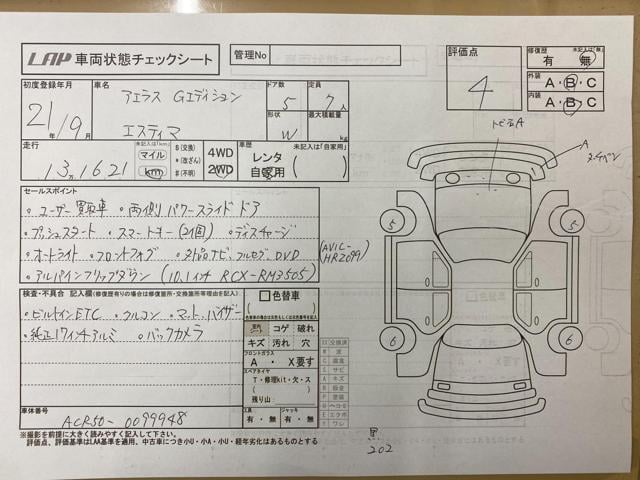 LAP 車両状態チェックシート
管理No
評価点
4
修復歴
未記入は「無」
有 無
外装
A・B・C
内装
A・B・C
初度登録年月
21年/9月
車名
アエラス Gエディション
エスティマ
ドア数
5
定員
7人
形状
W
最大積載量
kg
走行
未記入は「km」
13万1621
マイル
km
$(交換)
*(改ざん)
#(不明)
4WD
2WD
車歴
未記入は「自家用」
レンタ
自家用
セールスポイント
。ユーザー買取車 。両側パワースライドドア
。プッシュスタート 。スマートキー(2個) 。ディスチャージ
。オートライト 。フロントフォグ 。社外ナビ、フルセグ、DVD (AVIC-HRZ099)
。アルパインフリップダウン (10.1インチ RCX-RM3505)
検査・不具合 記入欄(修復歴有りの場合は修復箇所・交換箇所等理由を記入)
。ビルトインETC 。クルコン 。マット、バイザー
。純正17インチアルミ 。バックカメラ
色替車
コゲ 破れ
キズ 汚れ 穴
フロントガラス
A ・ X要す
スペアタイヤ
T・修理kit・欠・ス
残り山:
工具
有・無
ジャッキ
有・無
車体番号
ACR50-0099948
※撮影を前提に大きく読みやすく記入して下さい。
評価点、評価基準はLAA基準を適用、中古車につき小U・小A・小U・経年劣化はあるものとする
トビ石A
A
5
5
6
6
XX 交換済
黒
202